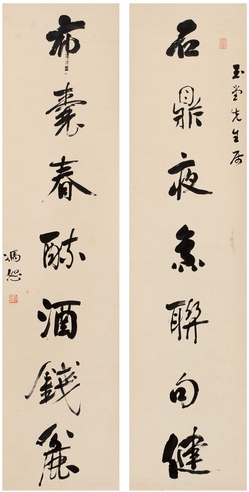 石鼎夜煮聯句健
布囊春醉酒錢麤
玉堂先生屬
馮恕